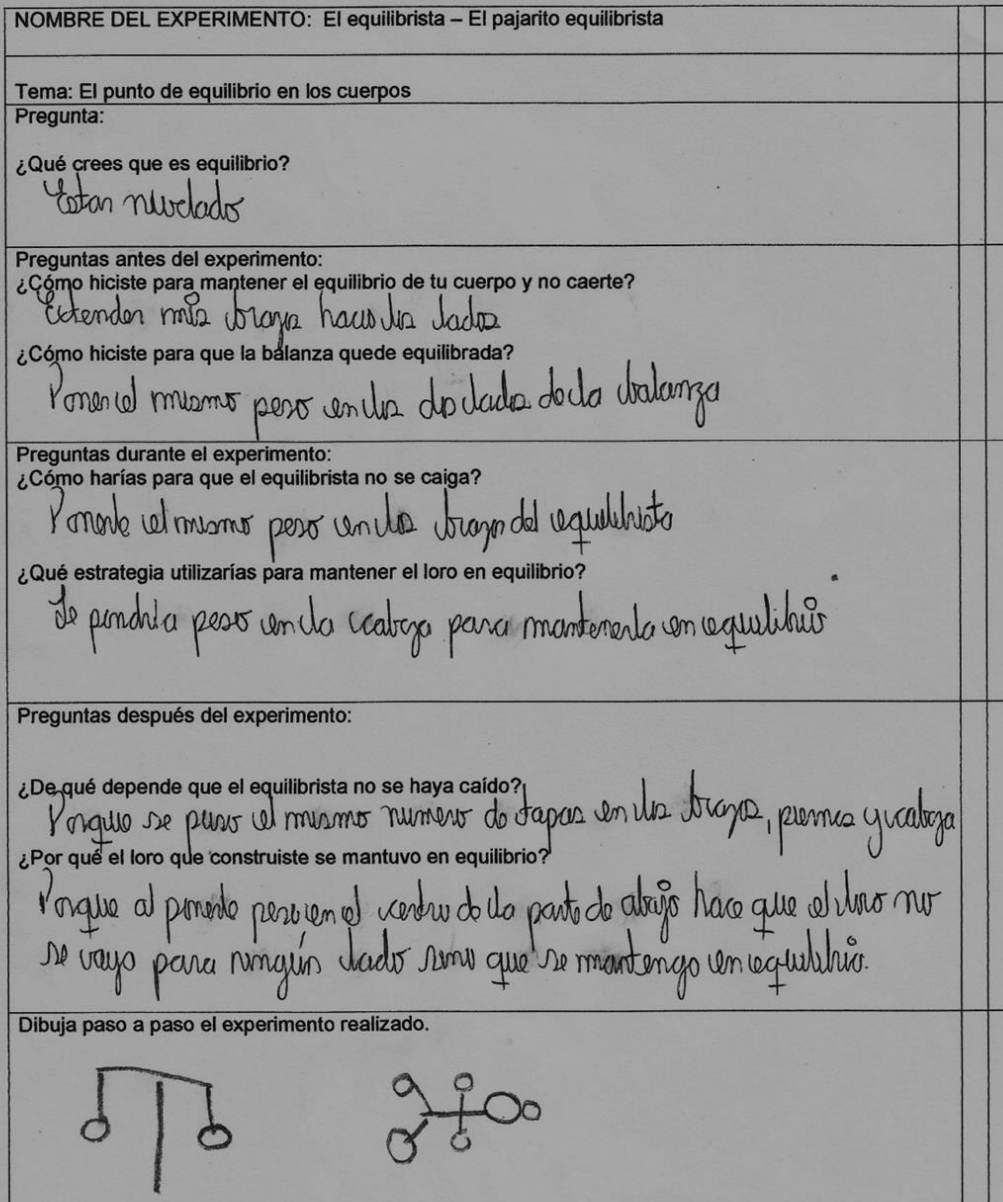 NOMBRE DEL EXPERIMENTO: El equilibrista – El pajarito equilibrista
Tema: El punto de equilibrio en los cuerpos
Pregunta:
¿Qué crees que es equilibrio?
Estar nivelado
Preguntas antes del experimento:
¿Cómo hiciste para mantener el equilibrio de tu cuerpo y no caerte?
Extender mis brazos hacia los lados
¿Cómo hiciste para que la balanza quede equilibrada?
Poner el mismo peso en los dos lados de la balanza
Preguntas durante el experimento:
¿Cómo harías para que el equilibrista no se caiga?
Ponerle el mismo peso en los brazos del equilibrista
¿Qué estrategia utilizarías para mantener el loro en equilibrio?
Le pondría peso en la cabeza para mantenerla en equilibrio
Preguntas después del experimento:
¿De qué depende que el equilibrista no se haya caído?
Porque se puso el mismo numero de tapas en los brazos, piernas y cabeza
¿Por qué el loro que construiste se mantuvo en equilibrio?
Porque al ponerle peso en el centro de la parte de abajo hace que el loro no
se vaya para ningún lado sino que se mantenga en equilibrio.
Dibuja paso a paso el experimento realizado.